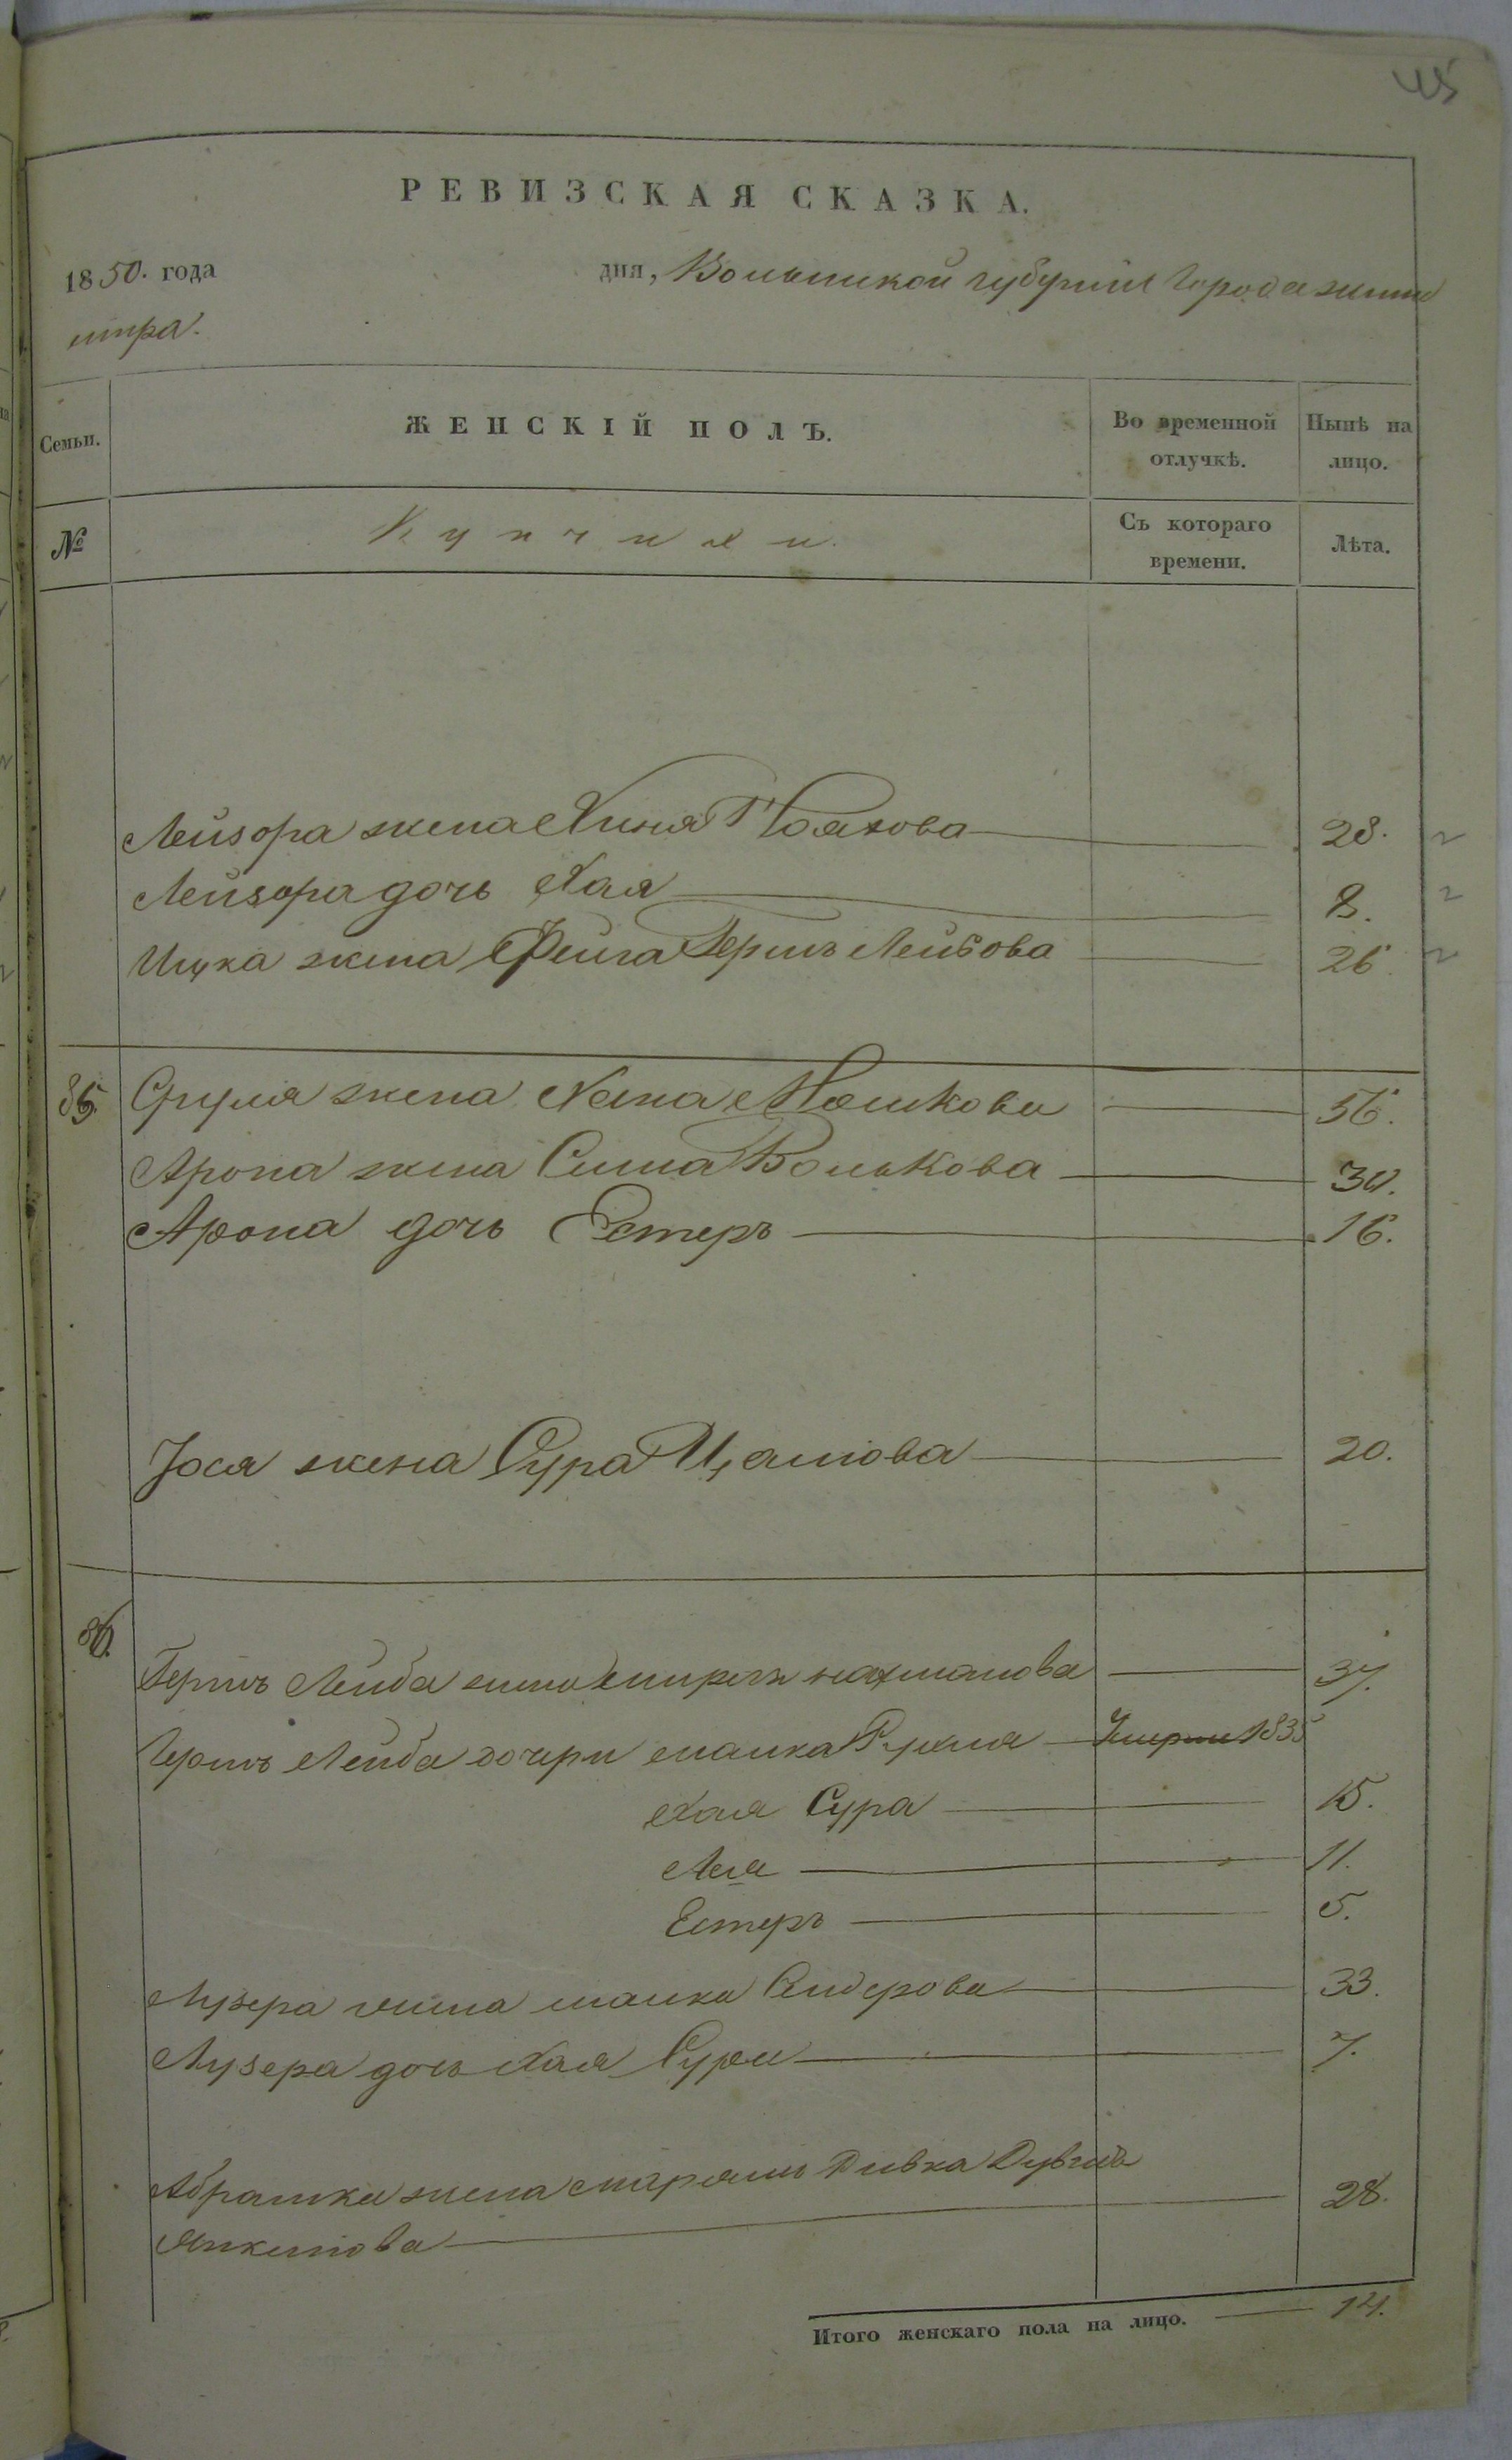 45
РЕВИЗСКАЯ СКАЗКА.
1850. года дня, Волынской губернии Города Жито
мира.
Семьи. ЖЕНСКІЙ ПОЛЪ. Во временной отлучкѣ. Нынѣ на лицо.
№ Купчихи. Съ котораго времени. Лѣта.
Лейзора жена Хиня 28.
Лейзора дочь Хая 8.
Ицка жена Фейга Герш Лейбова 26
85. Сруля жена Хана Мошкова 56.
Арона жена Сима Волькова 30.
Арона дочь Естеръ 16.
Іося жена Сура 20.
86. Гершъ Лейба жена нахманова 37.
Гершъ Лейба дочери малка Рухля 1835
Хая Сура 15.
Лея 11.
Естеръ 5.
Лузера жена малка Сендерова 33.
Лузера дочь Хая Сура 7.
Абрамка жена маріямъ Ривка 28.
Янкелова
Итого женскаго пола на лицо. 14.